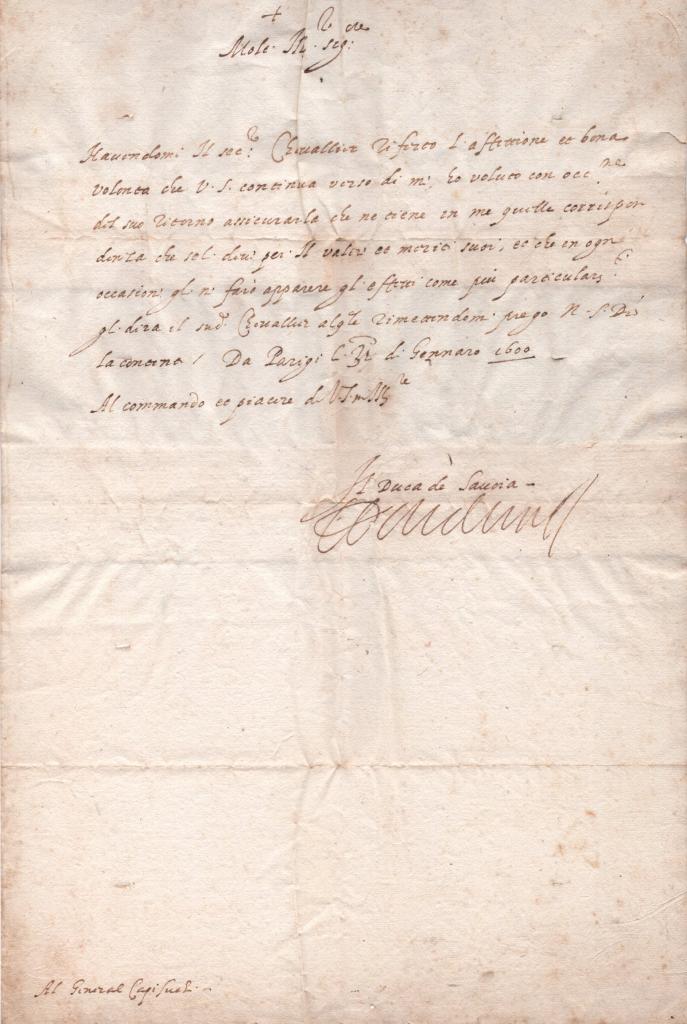 +
Molt' Ill.re Sig.re
Havendomi Il soc.ro Chevallier riferto l'affettione et bona
volonta che V. S. continua verso di mi, ho voluto con occ.ne
del suo ritorno assicurarla che ne tiene in me quella corrispon
denza che sol' per Il valor et meriti suoi, et che in ogni
occasion gl' n' farò apparere gl' effetti come più particular
gl' dira il sud.o Chevallier al q'le rimettendom' prego N. S. Dio
la contenti / Da Parigi l' di Gennaro 1600
Al commando et piacere di V. S. m. Ill.re
Il Duca di Savoia
Al General